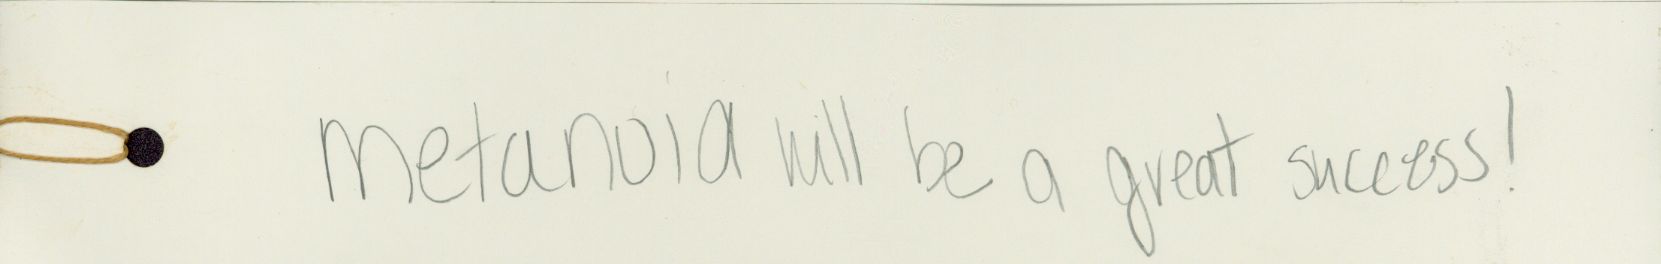 Metanoia will be a great success!